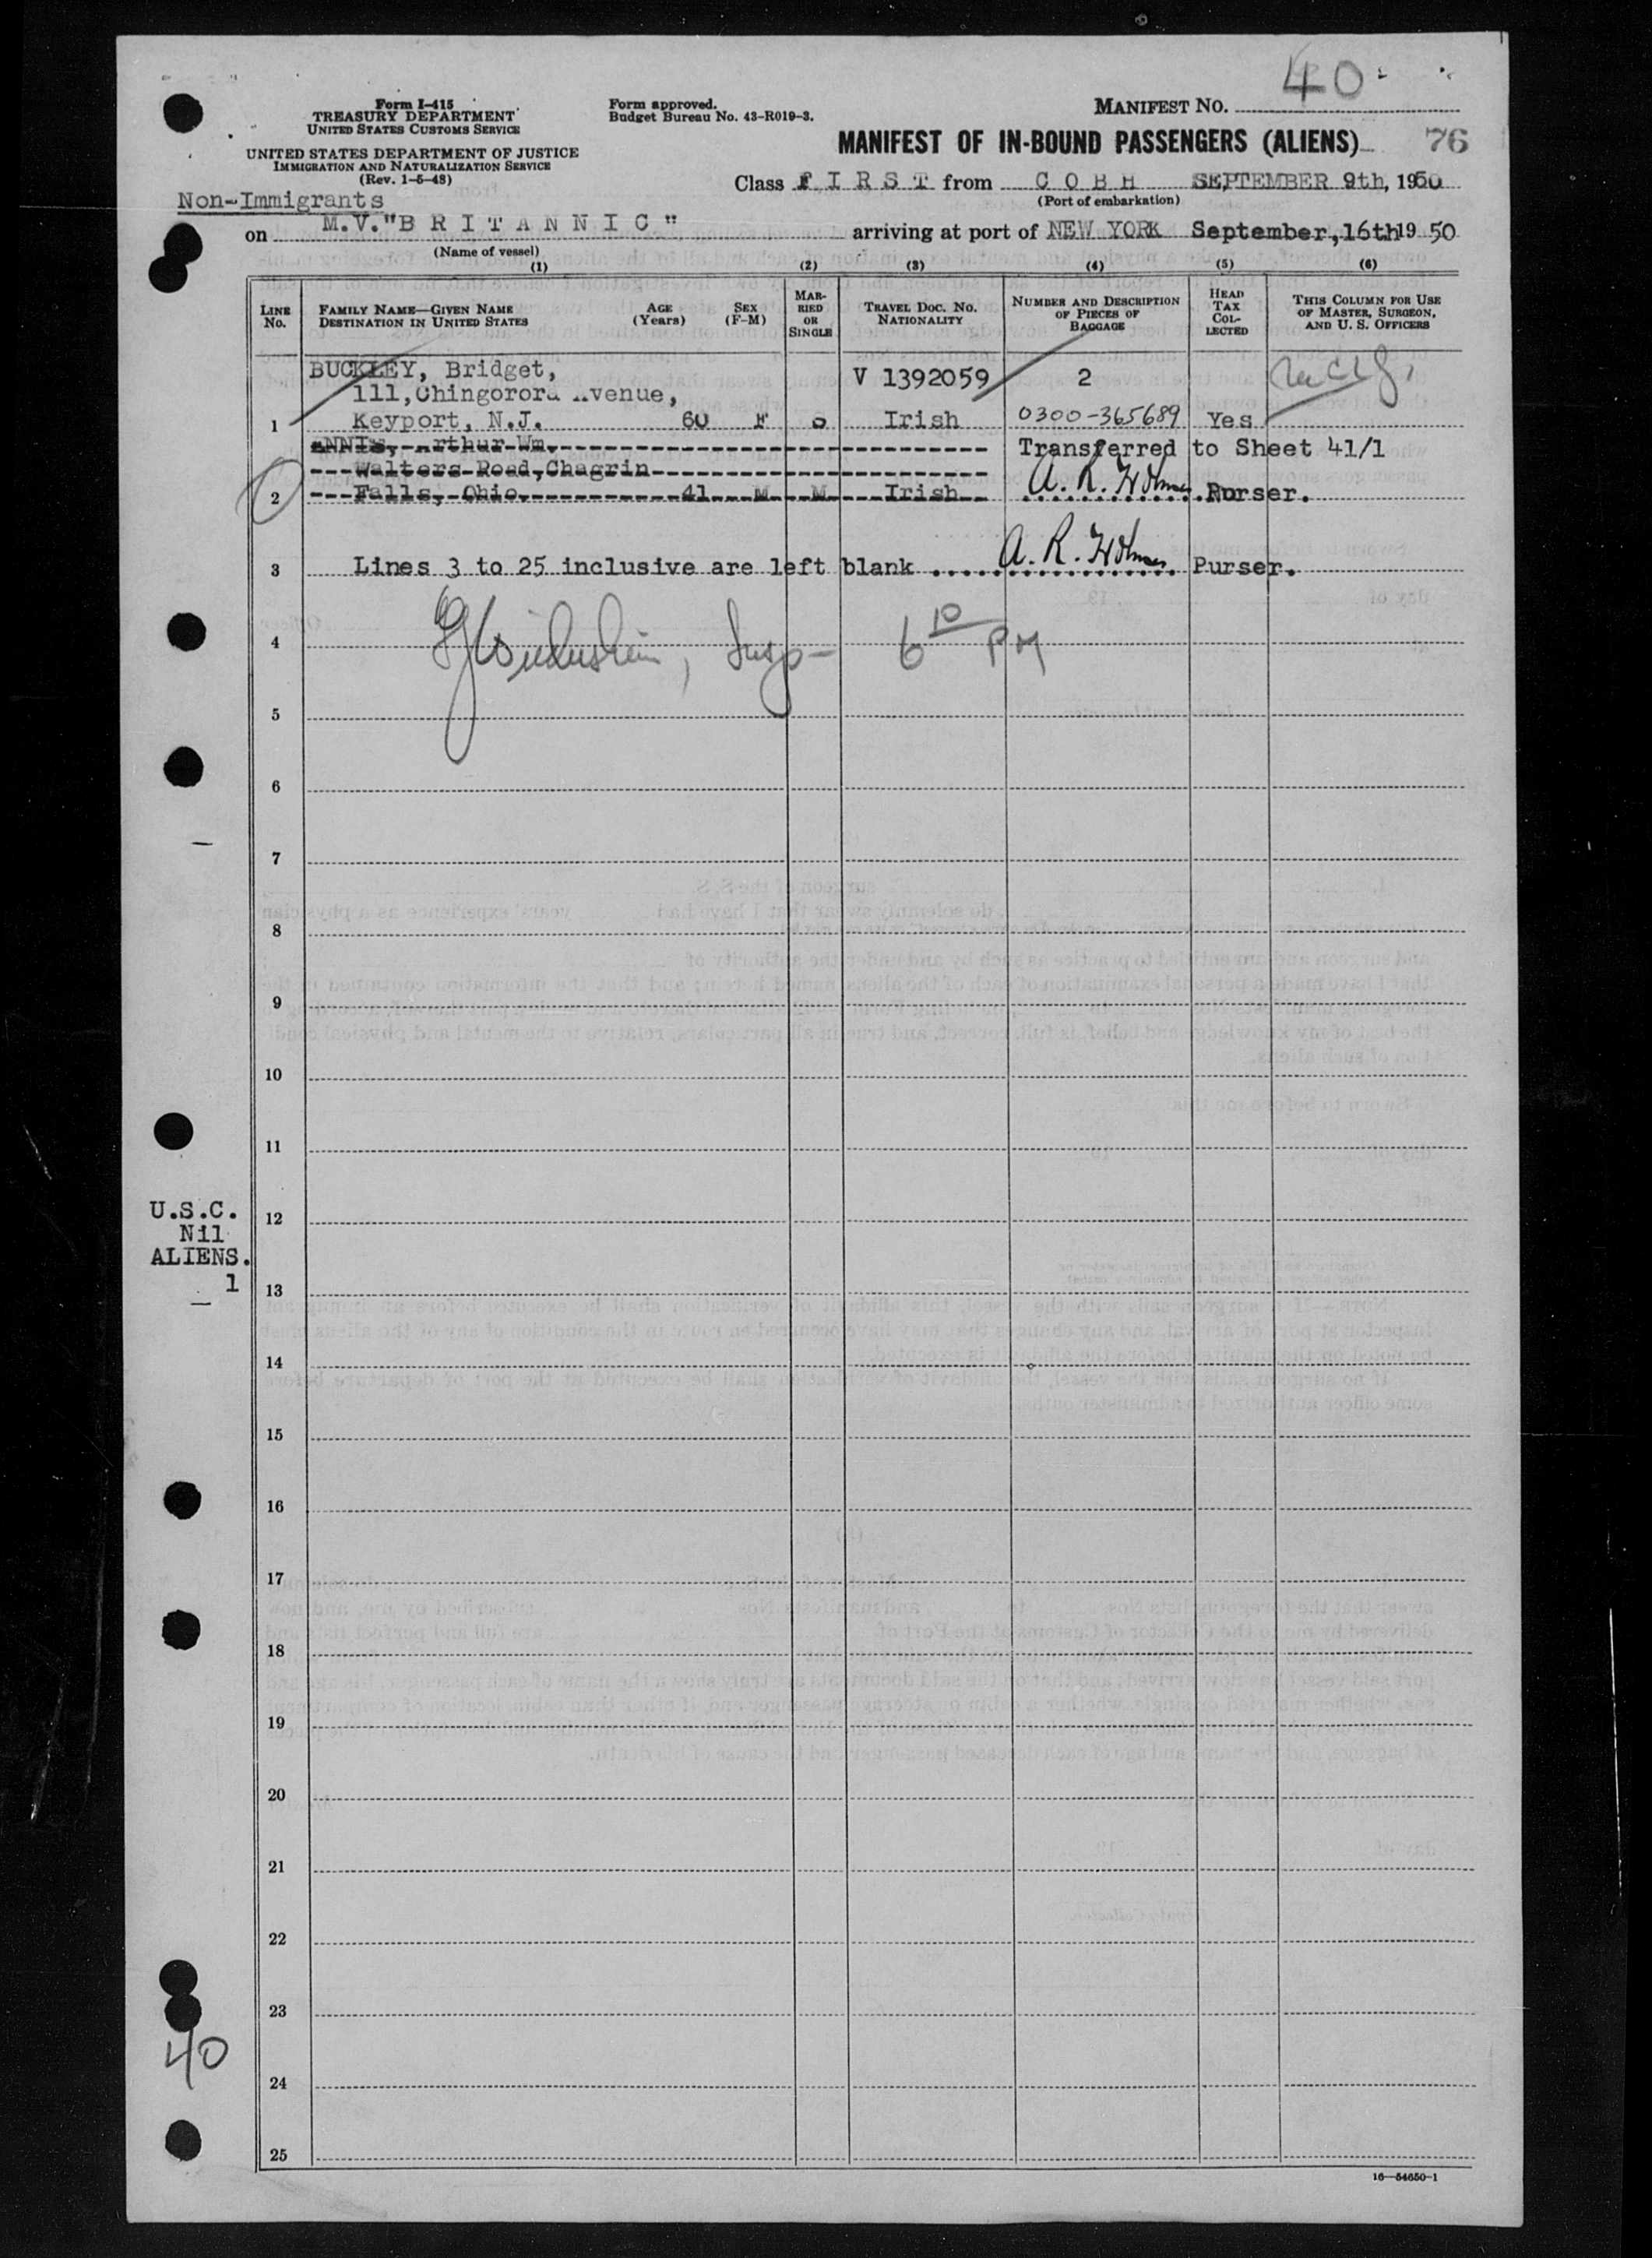 40
Form I-415
TREASURY DEPARTMENT
UNITED STATES CUSTOMS SERVICE
UNITED STATES DEPARTMENT OF JUSTICE
IMMIGRATION AND NATURALIZATION SERVICE
(Rev. 1-5-48)
Form approved.
Budget Bureau No. 43-R019-3.
MANIFEST NO.
MANIFEST OF IN-BOUND PASSENGERS (ALIENS) 76
Class F I R S T from C O B H SEPTEMBER 9th, 1950
(Port of embarkation)
Non-Immigrants
on M.V."B R I T A N N I C" arriving at port of NEW YORK September,16th 19 50
(Name of vessel)
(1) (2) (3) (4) (5) (6)
LINE No.
FAMILY NAME—GIVEN NAME
DESTINATION IN UNITED STATES
AGE (Years)
SEX (F-M)
MAR-RIED OR SINGLE
TRAVEL DOC. NO. NATIONALITY
NUMBER AND DESCRIPTION OF PIECES OF BAGGAGE
HEAD TAX COL-LECTED
THIS COLUMN FOR USE OF MASTER, SURGEON, AND U. S. OFFICERS
BUCKLEY, Bridget, V 1392059 2
111, Chingorora Avenue,
1 Keyport, N.J. 60 F Irish 0300-365689 Yes
ANNIS, Arthur Wm. Transferred to Sheet 41/1
Walters Road, Chagrin
2 Falls, Ohio. 41 M M Irish A. R. Holmes Purser.
3 Lines 3 to 25 inclusive are left blank .... A. R. Holmes Purser.
4 Insp- 6 10 PM
5
6
7
8
9
10
11
U.S.C.
Nil
ALIENS.
1
12
13
14
15
16
17
18
19
20
21
22
23
40
24
25
16—54650-1